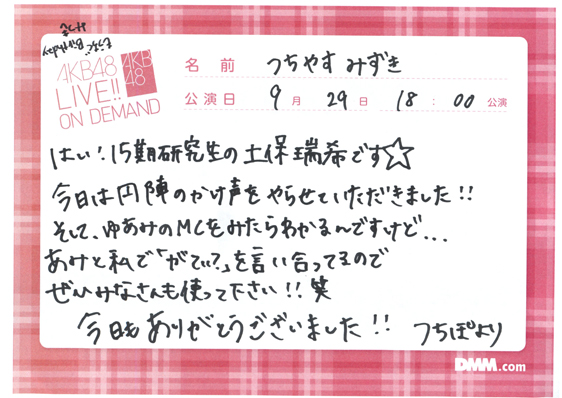 AKB48
LIVE!!
ON DEMAND
AKB
48
名前 つちやす みずき
公演日 9月 29日 18:00 公演
はい!15期研究生の土保瑞希です☆
今日は円陣のかけ声をやらせていただきました!!
そして、ゆあみのMCをみたらわかるんですけど...
あみと私で「がてぃ?」を言い合ってるので
ぜひみなさんも使って下さい!!笑
今日もありがとうございました!! つちぽより
DMM.com